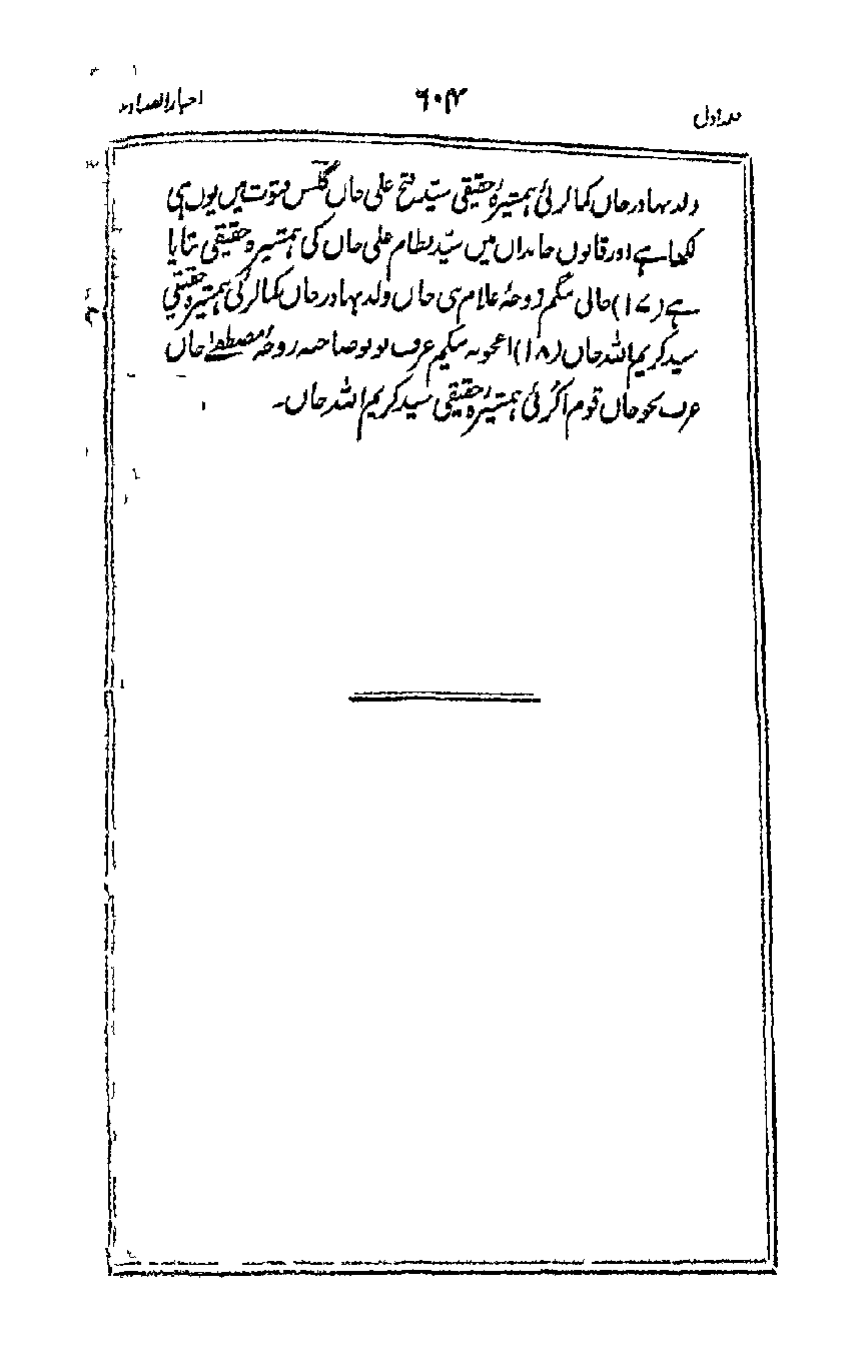 جلد اول ۶۰۴ اخبار الصنادید
ولد بہادر خاں کمالزئی ہمشیرۂ حقیقی سیّد فتح علی خاں گلشن فتوت میں یوں ہی
لکھا ہے اور قانون خاندان میں سیّد نظام علی خاں کی ہمشیرہ حقیقی بتایا
ہے (۱۷) خانی بیگم زوجۂ غلام نبی خاں ولد بہادر خاں کمالزئی ہمشیرہ حقیقی
سید کریم اللہ خاں (۱۸) اعجوبہ بیگم عرف بوبو صاحبہ زوجۂ مصطفےٰ خاں
عرف خاں قوم اکزئی ہمشیرۂ حقیقی سید کریم اللہ خاں۔